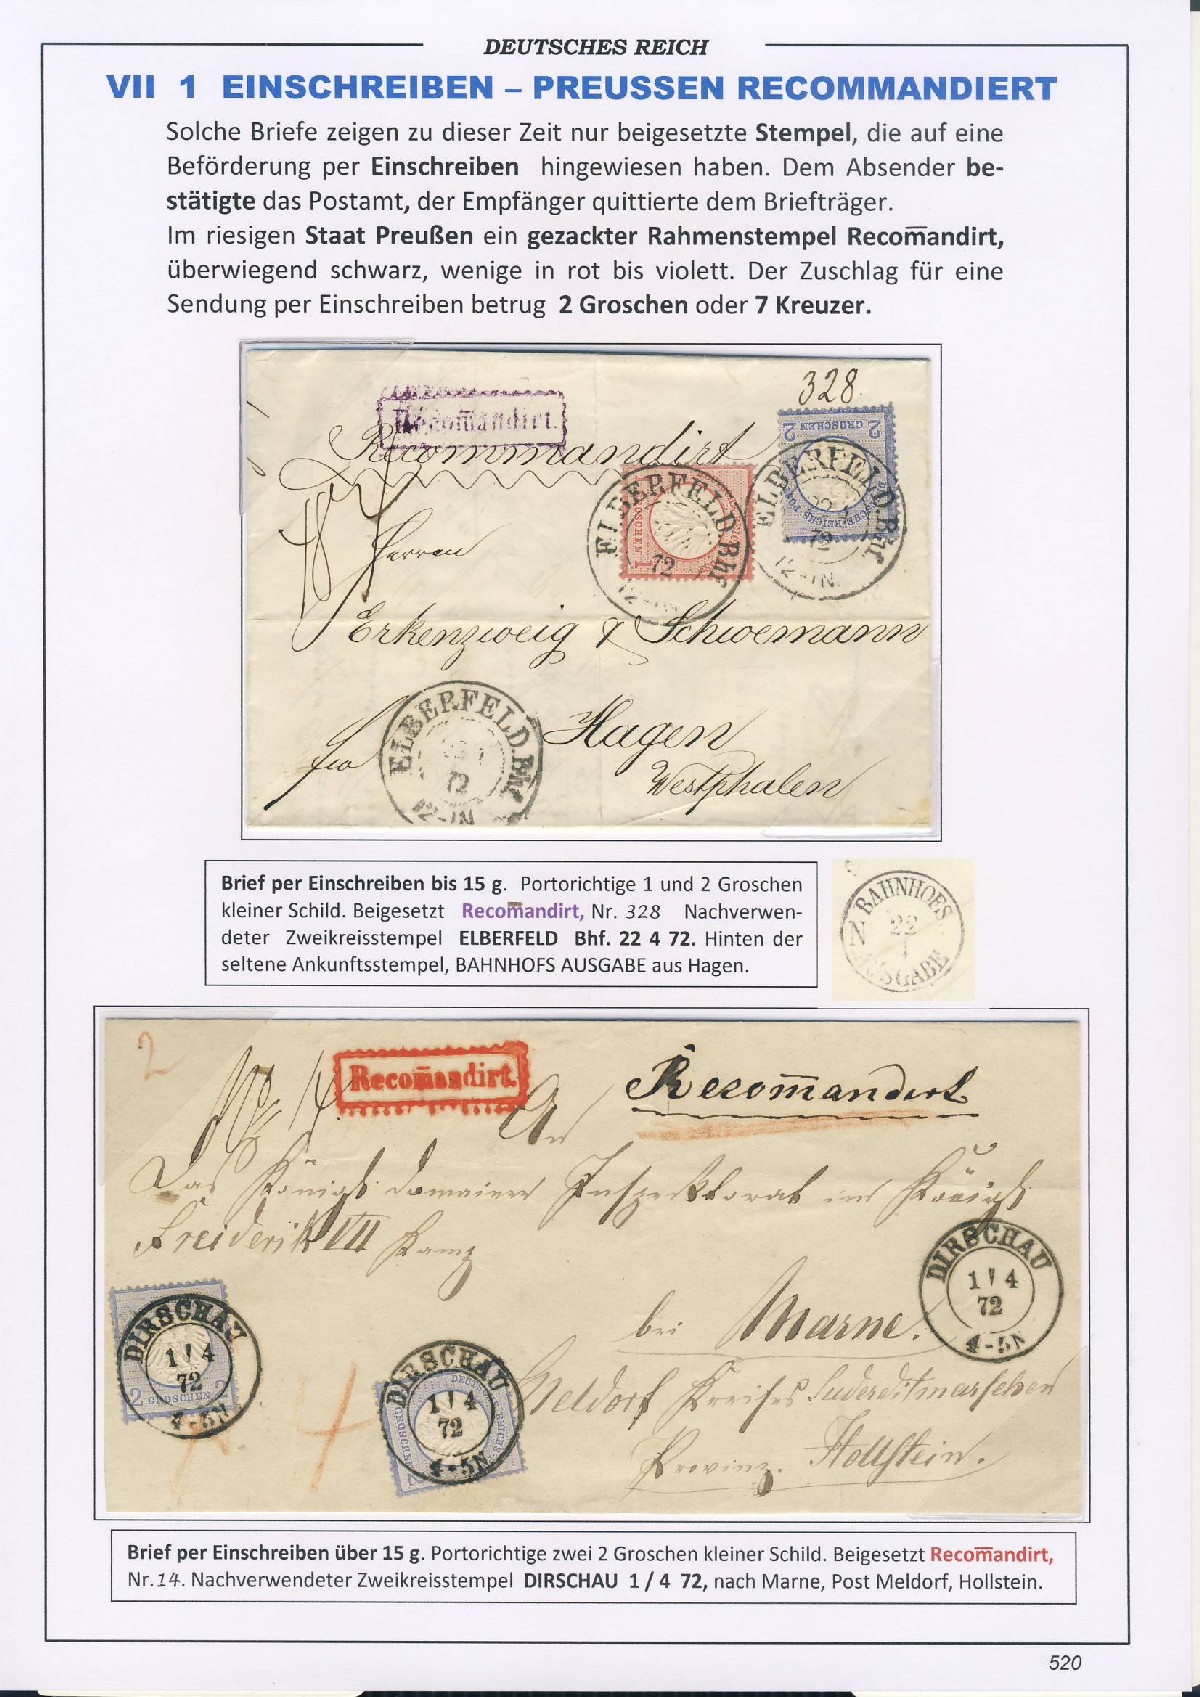 DEUTSCHES REICH
VII 1 EINSCHREIBEN – PREUSSEN RECOMMANDIERT
Solche Briefe zeigen zu dieser Zeit nur beigesetzte Stempel, die auf eine
Beförderung per Einschreiben hingewiesen haben. Dem Absender be-
stätigte das Postamt, der Empfänger quittierte dem Briefträger.
Im riesigen Staat Preußen ein gezackter Rahmenstempel Recom̅andirt,
überwiegend schwarz, wenige in rot bis violett. Der Zuschlag für eine
Sendung per Einschreiben betrug 2 Groschen oder 7 Kreuzer.
328
Recom̅andirt.
Recommandirt
2 GROSCHEN 2
ELBERFELD Bhf.
72
12-1N
ELBERFELD Bhf
72
Herren
Erkenzweig & Schwemann
Hagen
Westphalen
fco
ELBERFELD Bhf
72
12-1N
Brief per Einschreiben bis 15 g. Portorichtige 1 und 2 Groschen
kleiner Schild. Beigesetzt Recom̅andirt, Nr. 328 Nachverwen-
deter Zweikreisstempel ELBERFELD Bhf. 22 4 72. Hinten der
seltene Ankunftsstempel, BAHNHOFS AUSGABE aus Hagen.
BAHNHOFS
N 22
AUSGABE
2
Recom̅andirt.
Recom̅andirt
An
Das Königl. Domainen Inspektorat im Königl
Freiderik VII
bei Marne.
Meldorf Kreises Suderditmarschen
Provinz. Hollstein.
DIRSCHAU
1 4
72
4-5N
DIRSCHAU
1 4
72
4-5N
2 GROSCHEN 2
DIRSCHAU
1 4
72
4-5N
Brief per Einschreiben über 15 g. Portorichtige zwei 2 Groschen kleiner Schild. Beigesetzt Recom̅andirt,
Nr.14. Nachverwendeter Zweikreisstempel DIRSCHAU 1 / 4 72, nach Marne, Post Meldorf, Hollstein.
520